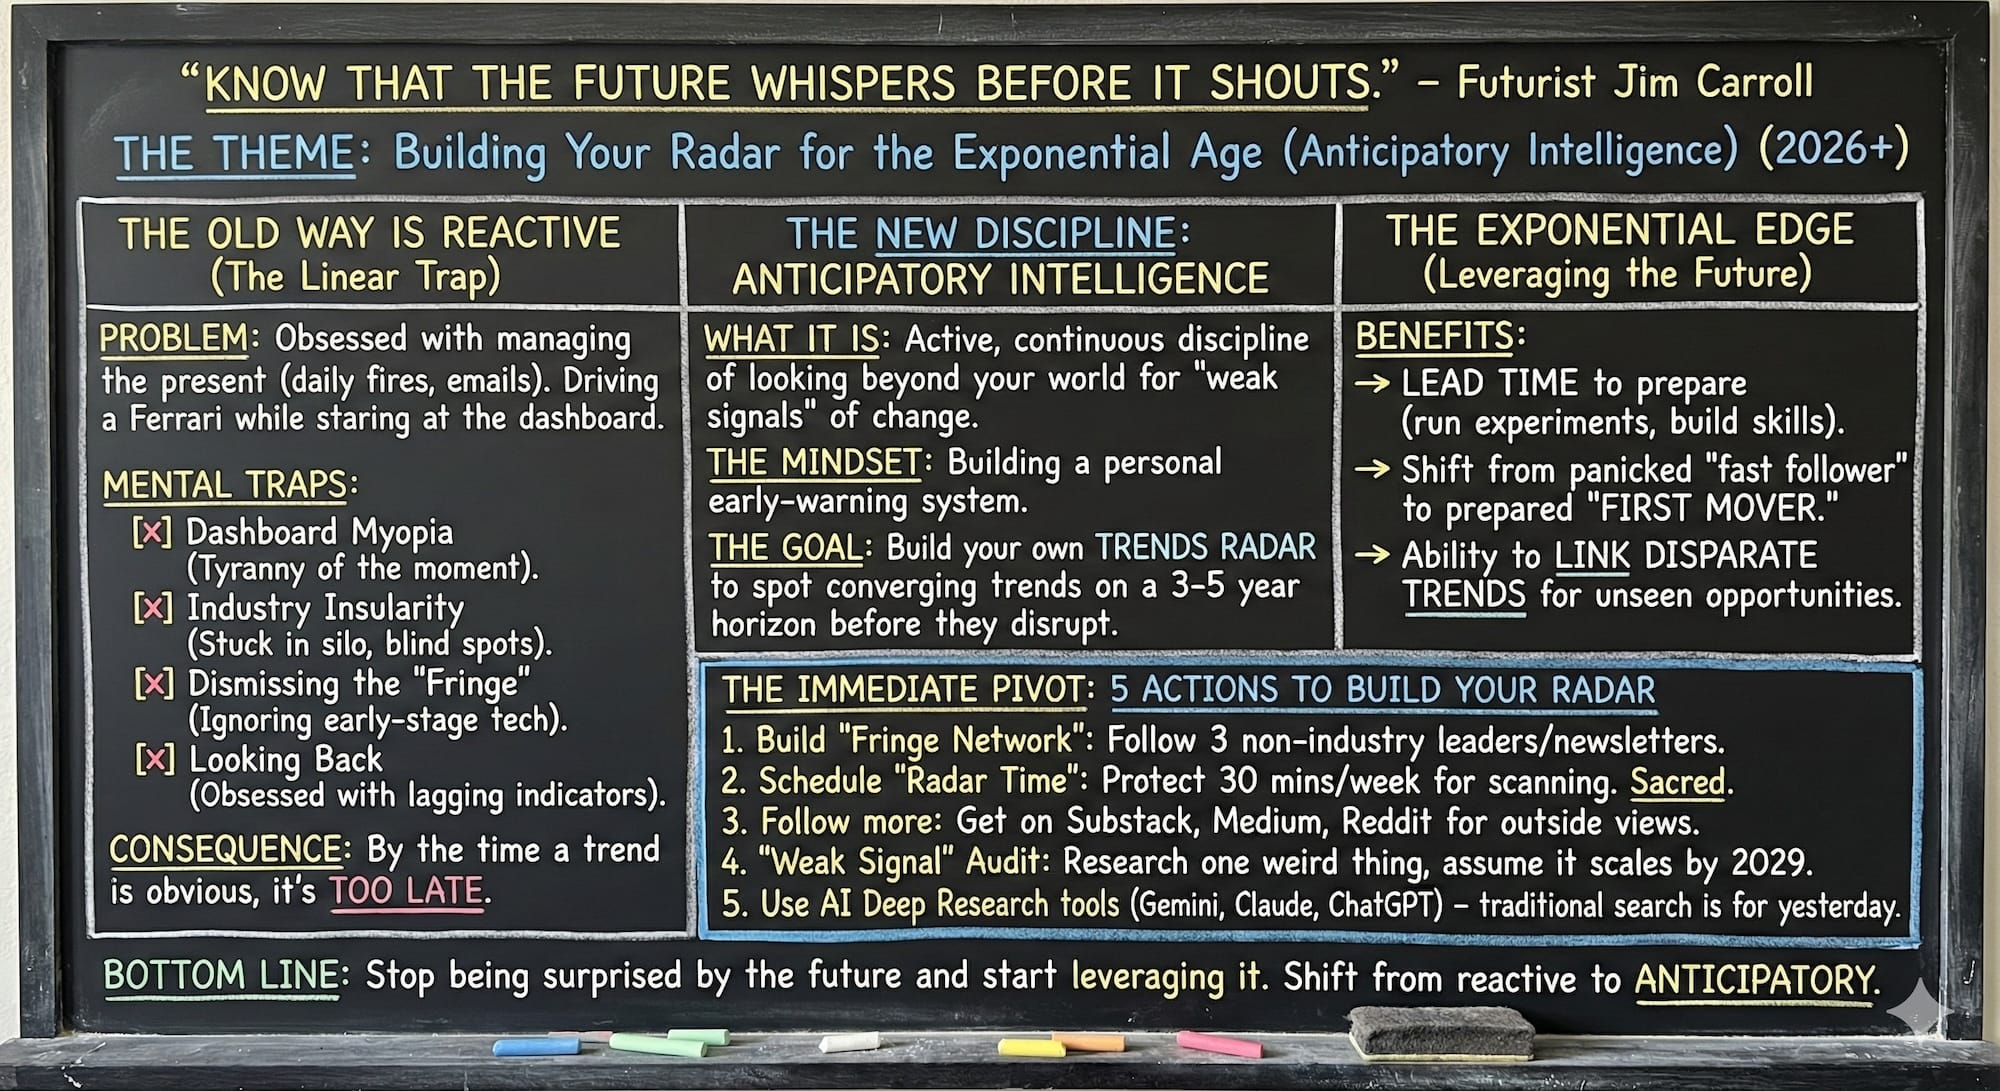 “KNOW THAT THE FUTURE WHISPERS BEFORE IT SHOUTS.” – Futurist Jim Carroll
THE THEME: Building Your Radar for the Exponential Age (Anticipatory Intelligence) (2026+)
THE OLD WAY IS REACTIVE
(The Linear Trap)
PROBLEM: Obsessed with managing
the present (daily fires, emails). Driving
a Ferrari while staring at the dashboard.
MENTAL TRAPS:
[x] Dashboard Myopia
(Tyranny of the moment).
[x] Industry Insularity
(Stuck in silo, blind spots).
[x] Dismissing the "Fringe"
(Ignoring early-stage tech).
[x] Looking Back
(Obsessed with lagging indicators).
CONSEQUENCE: By the time a trend
is obvious, it's TOO LATE.
THE NEW DISCIPLINE:
ANTICIPATORY INTELLIGENCE
WHAT IT IS: Active, continuous discipline
of looking beyond your world for "weak
signals" of change.
THE MINDSET: Building a personal
early-warning system.
THE GOAL: Build your own TRENDS RADAR
to spot converging trends on a 3-5 year
horizon before they disrupt.
THE EXPONENTIAL EDGE
(Leveraging the Future)
BENEFITS:
→ LEAD TIME to prepare
(run experiments, build skills).
→ Shift from panicked "fast follower"
to prepared "FIRST MOVER."
→ Ability to LINK DISPARATE
TRENDS for unseen opportunities.
THE IMMEDIATE PIVOT: 5 ACTIONS TO BUILD YOUR RADAR
1. Build "Fringe Network": Follow 3 non-industry leaders/newsletters.
2. Schedule "Radar Time": Protect 30 mins/week for scanning. Sacred.
3. Follow more: Get on Substack, Medium, Reddit for outside views.
4. "Weak Signal" Audit: Research one weird thing, assume it scales by 2029.
5. Use AI Deep Research tools (Gemini, Claude, ChatGPT) – traditional search is for yesterday.
BOTTOM LINE: Stop being surprised by the future and start leveraging it. Shift from reactive to ANTICIPATORY.